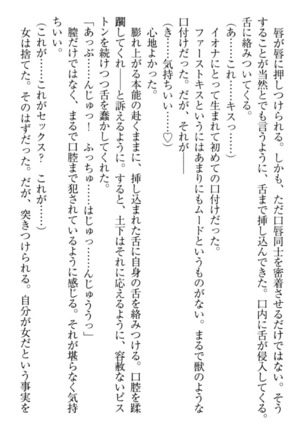 唇が唇に押しつけられる。しかも、ただ口唇同士を密着させるだけではない。そう
することが当然とでも言うように、舌まで挿し込んできた。口内に舌が侵入してくる。
舌に絡みついてくる。
(あ……これ……キスっ……)
イオナにとって生まれて初めての口付けだった。
ファーストキスというにはあまりにもムードというものがない。まるで獣のような
口付けだった。だが、それが――
(き……気持ちいい……♡)
心地よかった。
膨れ上がる本能の赴くままに、挿し込まれた舌に自身の舌を絡みつける。口腔を蹂
躙してくれ――と訴えるように。すると、土下はそれに応えるように、容赦ないピス
トンを続けつつ舌を蠢かしてくれた。
「あっぷ……んじゅっ! ふっちゅ……はじゅっ……んじゅううっ」
膣だけではなく、まるで口腔まで犯されているように感じる。それが堪らなく気持
ちいい。
(これが……これがセックス? これが……)
女は捨てた。そのはずだった。だが、突きつけられる。自分が女だという事実を